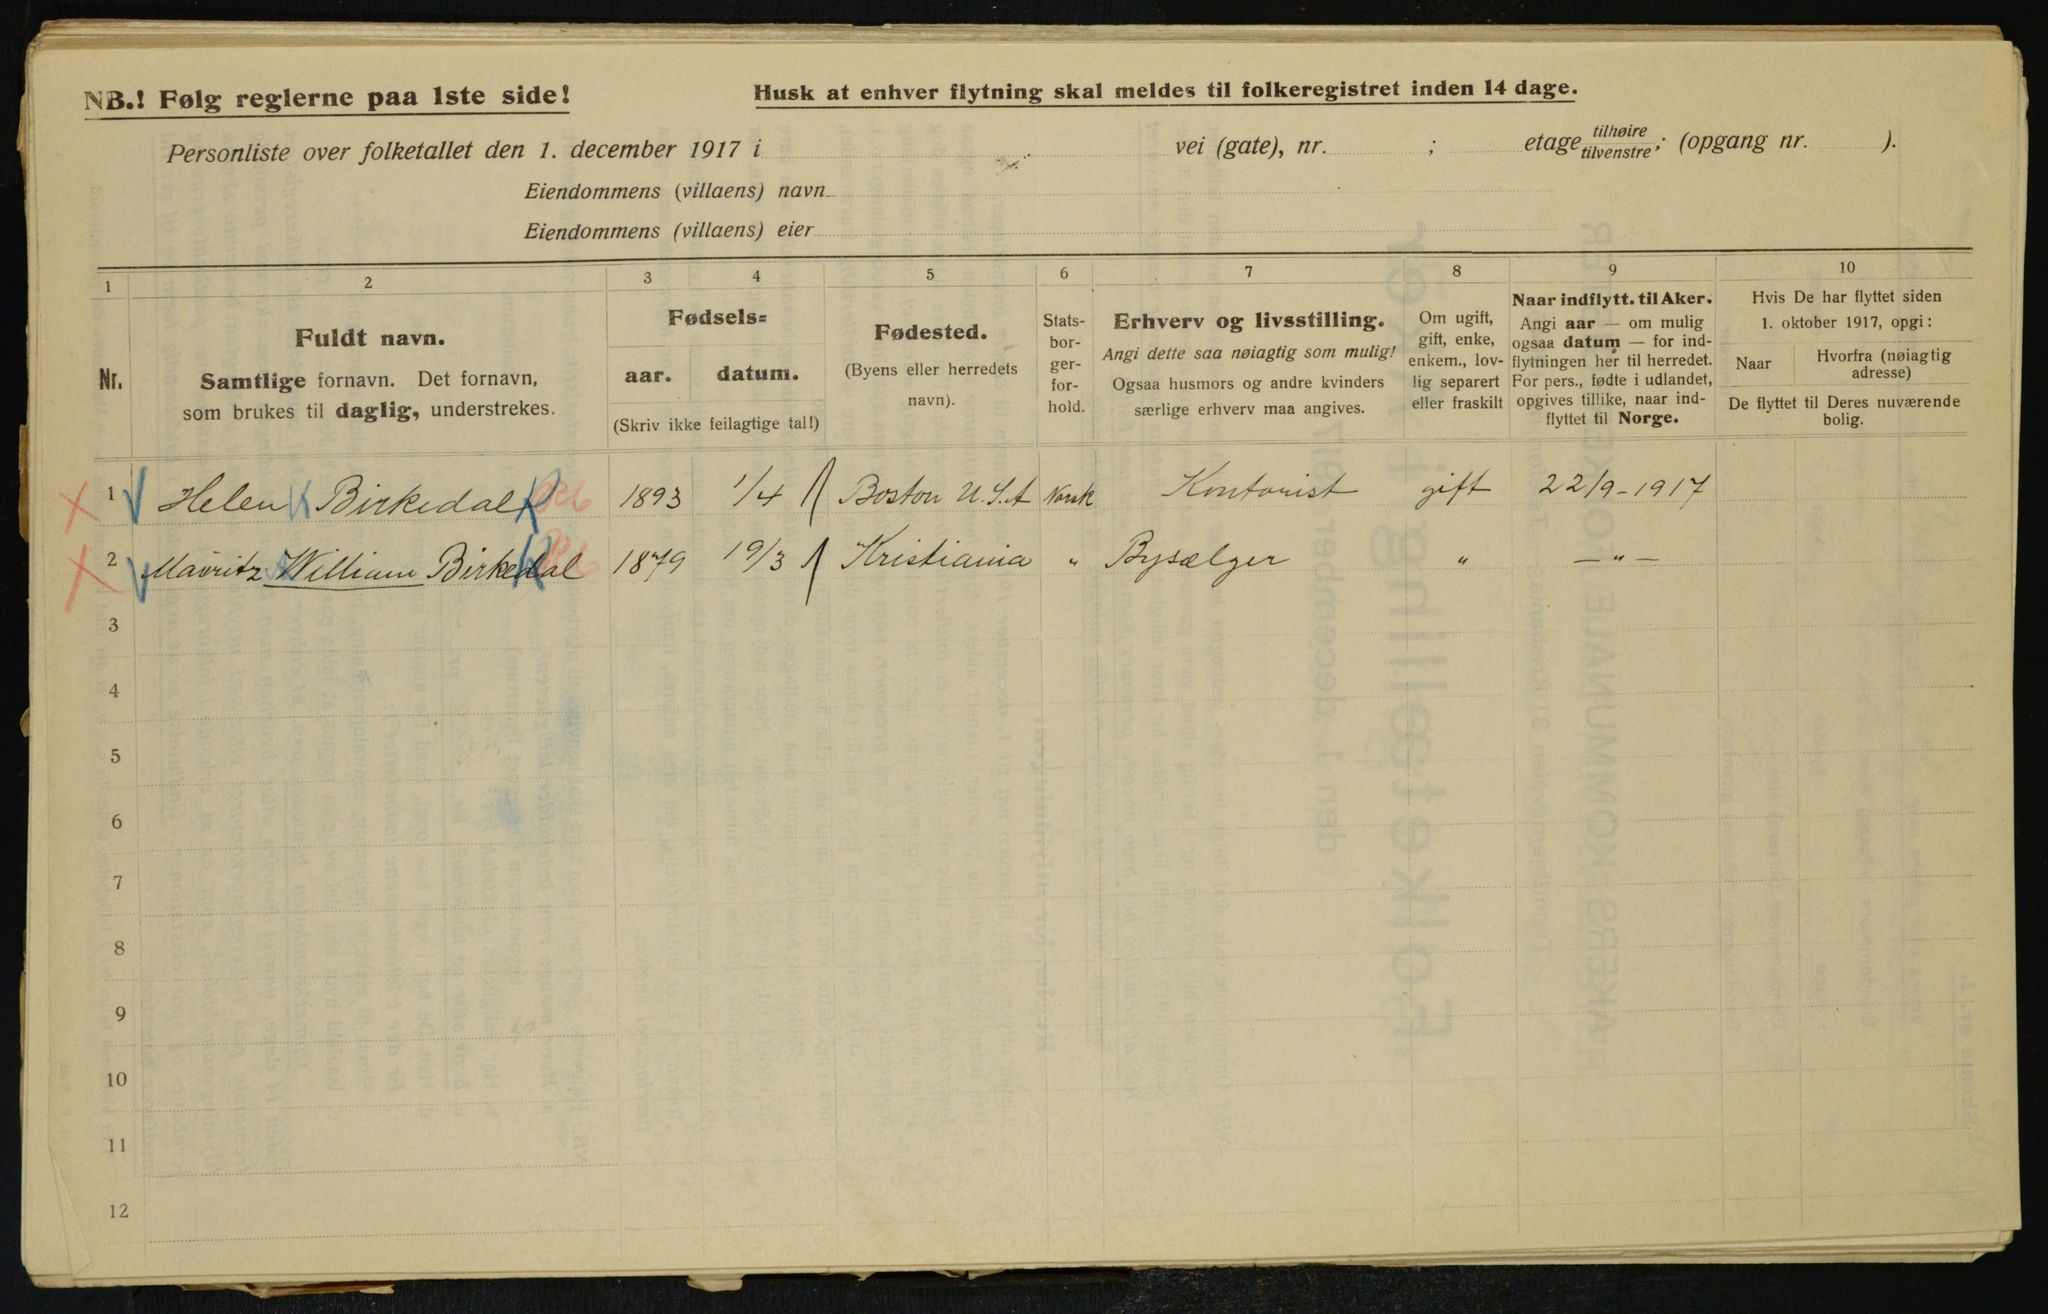 NB.! Følg reglerne paa 1ste side!
Husk at enhver flytning skal meldes til folkeregistret inden 14 dage.
Personliste over folketallet den 1. december 1917 i vei (gate), nr. ; etage tilhøire tilvenstre ; (opgang nr. ).
Eiendommens (villaens) navn
Eiendommens (villaens) eier
1 2 3 4 5 6 7 8 9 10
Nr.
Fuldt navn.
Samtlige fornavn. Det fornavn,
som brukes til daglig, understrekes.
Fødsels=
aar. datum.
(Skriv ikke feilagtige tal!)
Fødested.
(Byens eller herredets
navn).
Stats-
bor-
ger-
for-
hold.
Erhverv og livsstilling.
Angi dette saa nøiagtig som mulig!
Ogsaa husmors og andre kvinders
særlige erhverv maa angives.
Om ugift,
gift, enke,
enkem., lov-
lig separert
eller fraskilt
Naar indflytt. til Aker.
Angi aar — om mulig
ogsaa datum — for ind-
flytningen her til herredet.
For pers., fødte i udlandet,
opgives tillike, naar ind-
flyttet til Norge.
Hvis De har flyttet siden
1. oktober 1917, opgi:
Naar
Hvorfra (nøiagtig
adresse)
De flyttet til Deres nuværende
bolig.
1 Helen Birkedal 1893 1/4 Boston U.S.A Norsk Kontorist gift 22/9-1917
2 Mauritz William Birkedal 1879 19/3 Kristiania " Bysælger " —"—
3
4
5
6
7
8
9
10
11
12